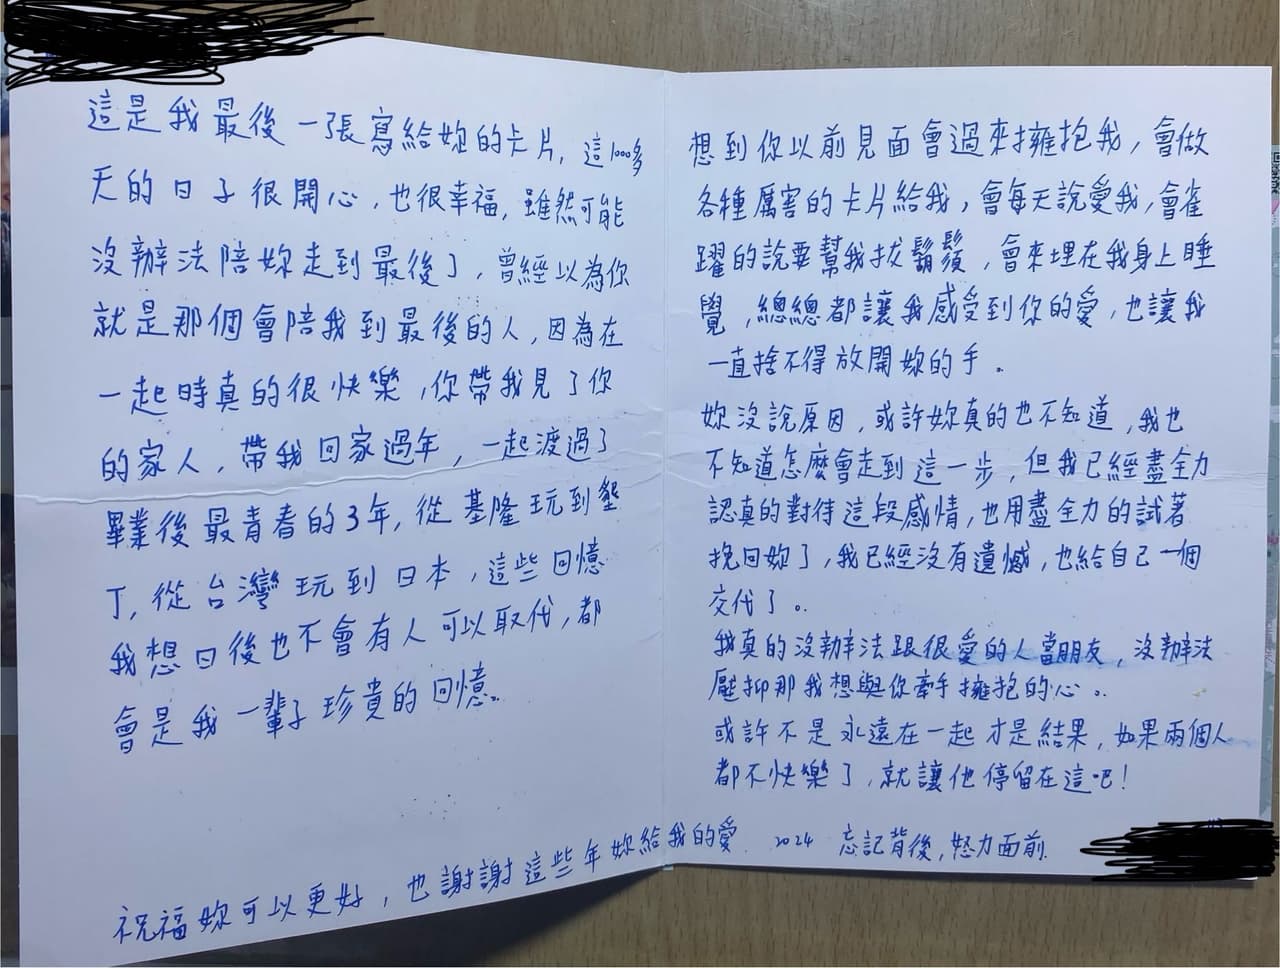 這是我最後一張寫給妳的卡片，這1000多
天的日子很開心，也很幸福，雖然可能
沒辦法陪妳走到最後了，曾經以為你
就是那個會陪我到最後的人，因為在
一起時真的很快樂，你帶我見了你
的家人，帶我回家過年，一起渡過了
畢業後最青春的3年，從基隆玩到墾
丁，從台灣玩到日本，這些回憶
我想日後也不會有人可以取代，都
會是我一輩子珍貴的回憶。
想到你以前見面會過來擁抱我，會做
各種厲害的卡片給我，會每天說愛我，會雀
躍的說要幫我拔鬍鬚，會來埋在我身上睡
覺，總總都讓我感受到你的愛，也讓我
一直捨不得放開妳的手。
妳沒說原因，或許妳真的也不知道，我也
不知道怎麼會走到這一步，但我已經盡全力
認真的對待這段感情，也用盡全力的試著
挽回妳了，我已經沒有遺憾，也給自己一個
交代了。
我真的沒辦法跟很愛的人當朋友，沒辦法
壓抑那我想與你牽手擁抱的心。
或許不是永遠在一起才是結果，如果兩個人
都不快樂了，就讓他停留在這吧！
祝福妳可以更好，也謝謝這些年妳給我的愛. 2024 忘記背後，努力面前.